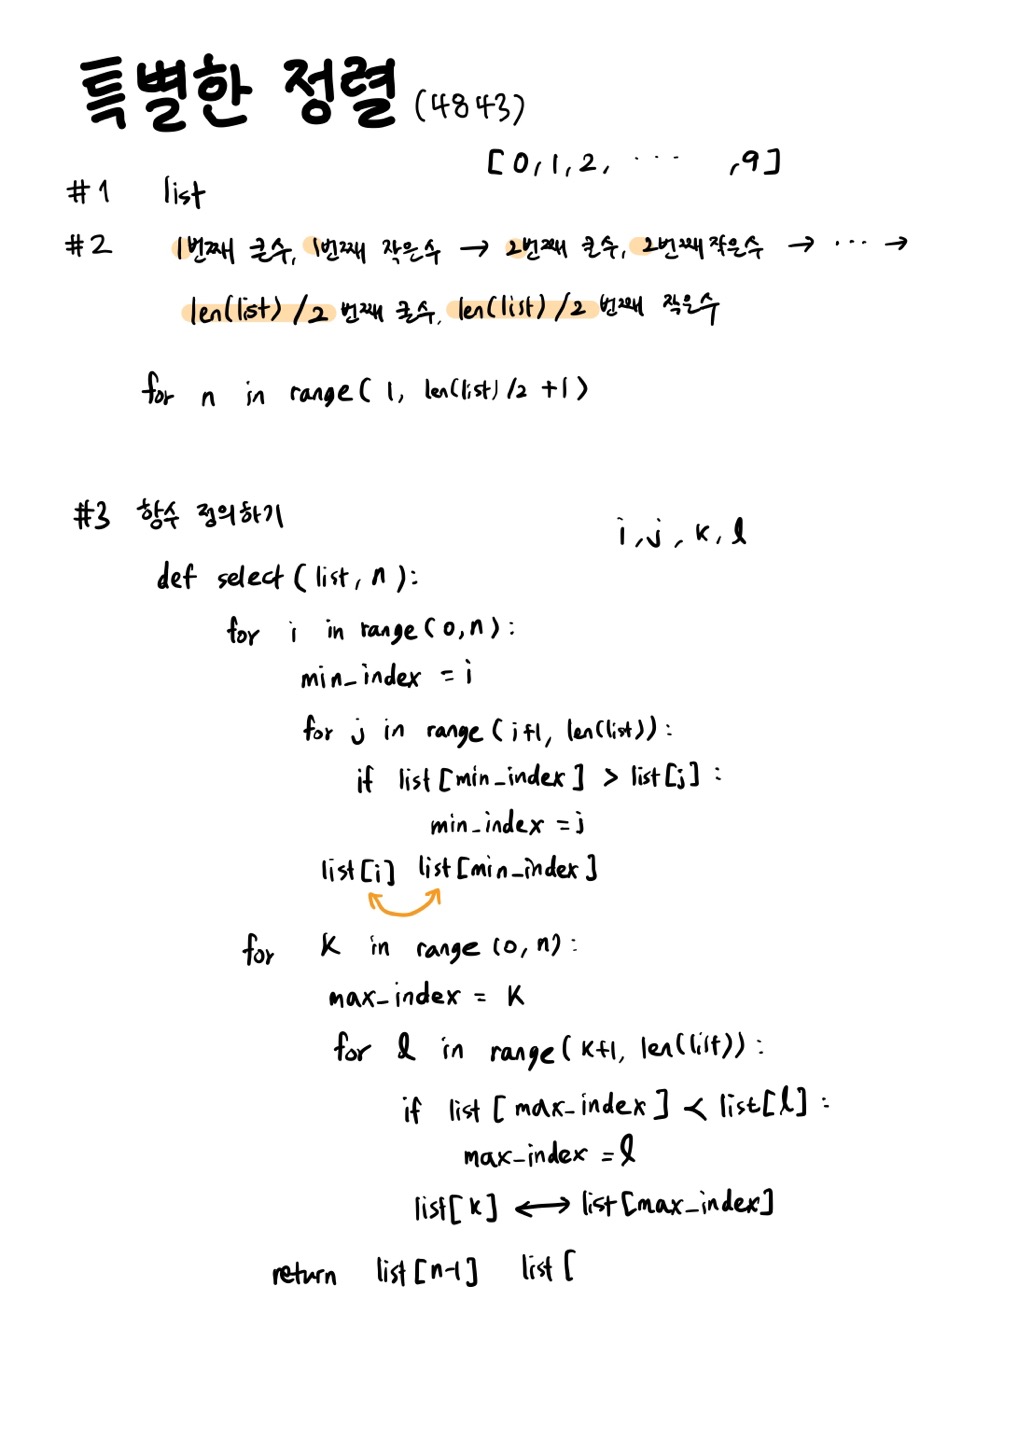 특별한 정렬 (4843)
[0, 1, 2, ... , 9]
#1 list
#2 1번째 큰수, 1번째 작은수 → 2번째 큰수, 2번째 작은수 → ... →
len(list)/2 번째 큰수, len(list)/2 번째 작은수
for n in range( 1, len(list)/2 +1)
#3 함수 정의하기
i, j, k, l
def select(list, n):
for i in range(0,n):
min_index = i
for j in range(i+1, len(list)):
if list[min_index] > list[j]:
min_index = j
list[i] list[min_index]
for k in range(0, n):
max_index = k
for l in range(k+1, len(list)):
if list[max_index] < list[l]:
max_index = l
list[k] ↔ list[max_index]
return list[n-1] list[